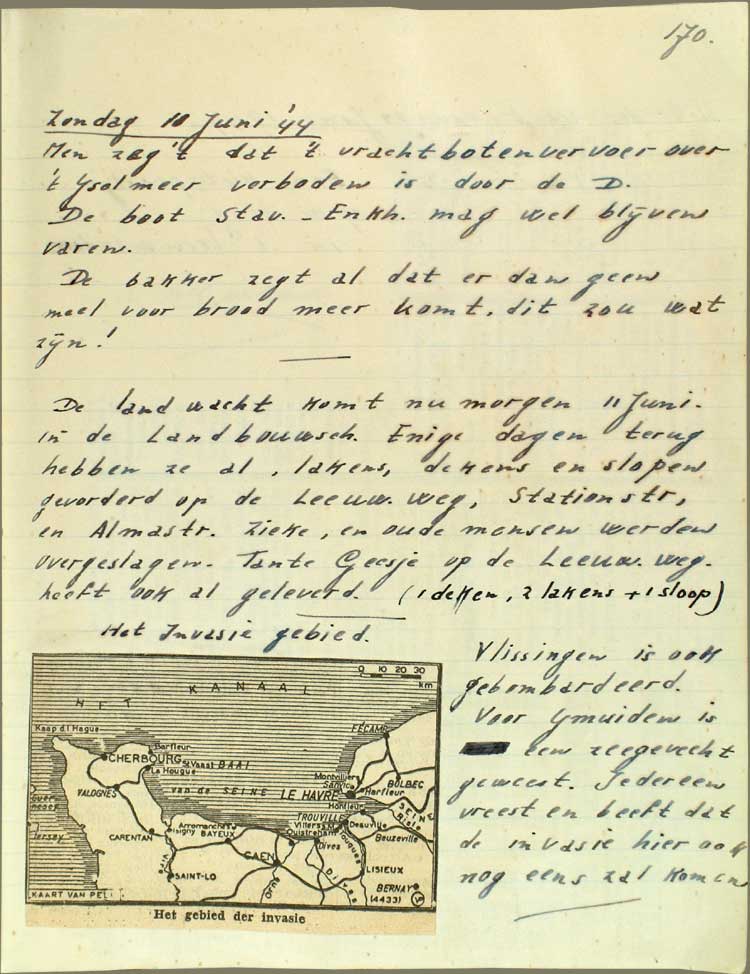 170.
Zondag 10 Juni '44
Men zeg't dat 't vrachtbotenvervoer over
't Yselmeer verboden is door de D.
De boot Stav. - Enkh. mag wel blijven
varen.
De bakker zegt al dat er dan geen
meel voor brood meer komt, dit zou wat
zijn!
De landwacht komt nu morgen 11 Juni.
in de Landbouwsch. Enige dagen terug
hebben ze al, lakens, dekens en slopen
gevorderd op de Leeuw. weg, Stationstr,
en Almastr. Zieke, en oude mensen werden
overgeslagen. Tante Geesje op de Leeuw. weg.
heeft ook al geleverd. (1 deken, 2 lakens + 1 sloop)
Het Invasie gebied.
Vlissingen is ook
gebombardeerd.
Voor Ymuiden is
een zeegevecht
geweest. Iedereen
vreest en beeft dat
de invasie hier ook
nog eens zal komen
0 10 20 30
km
HET KANAAL
Kaap d. l Hague
FÉCAMP
Barfleur
CHERBOURG
St Vaast
BAAI
La Hougue
Montivilliers
Sanvic
BOLBEC
VALOGNES
van de SEINE
LE HAVRE
Harfleur
Honfleur
SEINE
Risle
TROUVILLE
Deauville
Villers
Jersey
CARENTAN
Isigny
Arromanches
BAYEUX
Ouistreham
Dives
Touques
Beuzeville
CAEN
Vire
SAINT-LO
Orne
Dives
LISIEUX
BERNAY
(4433)
KAART VAN PELT
Het gebied der invasie